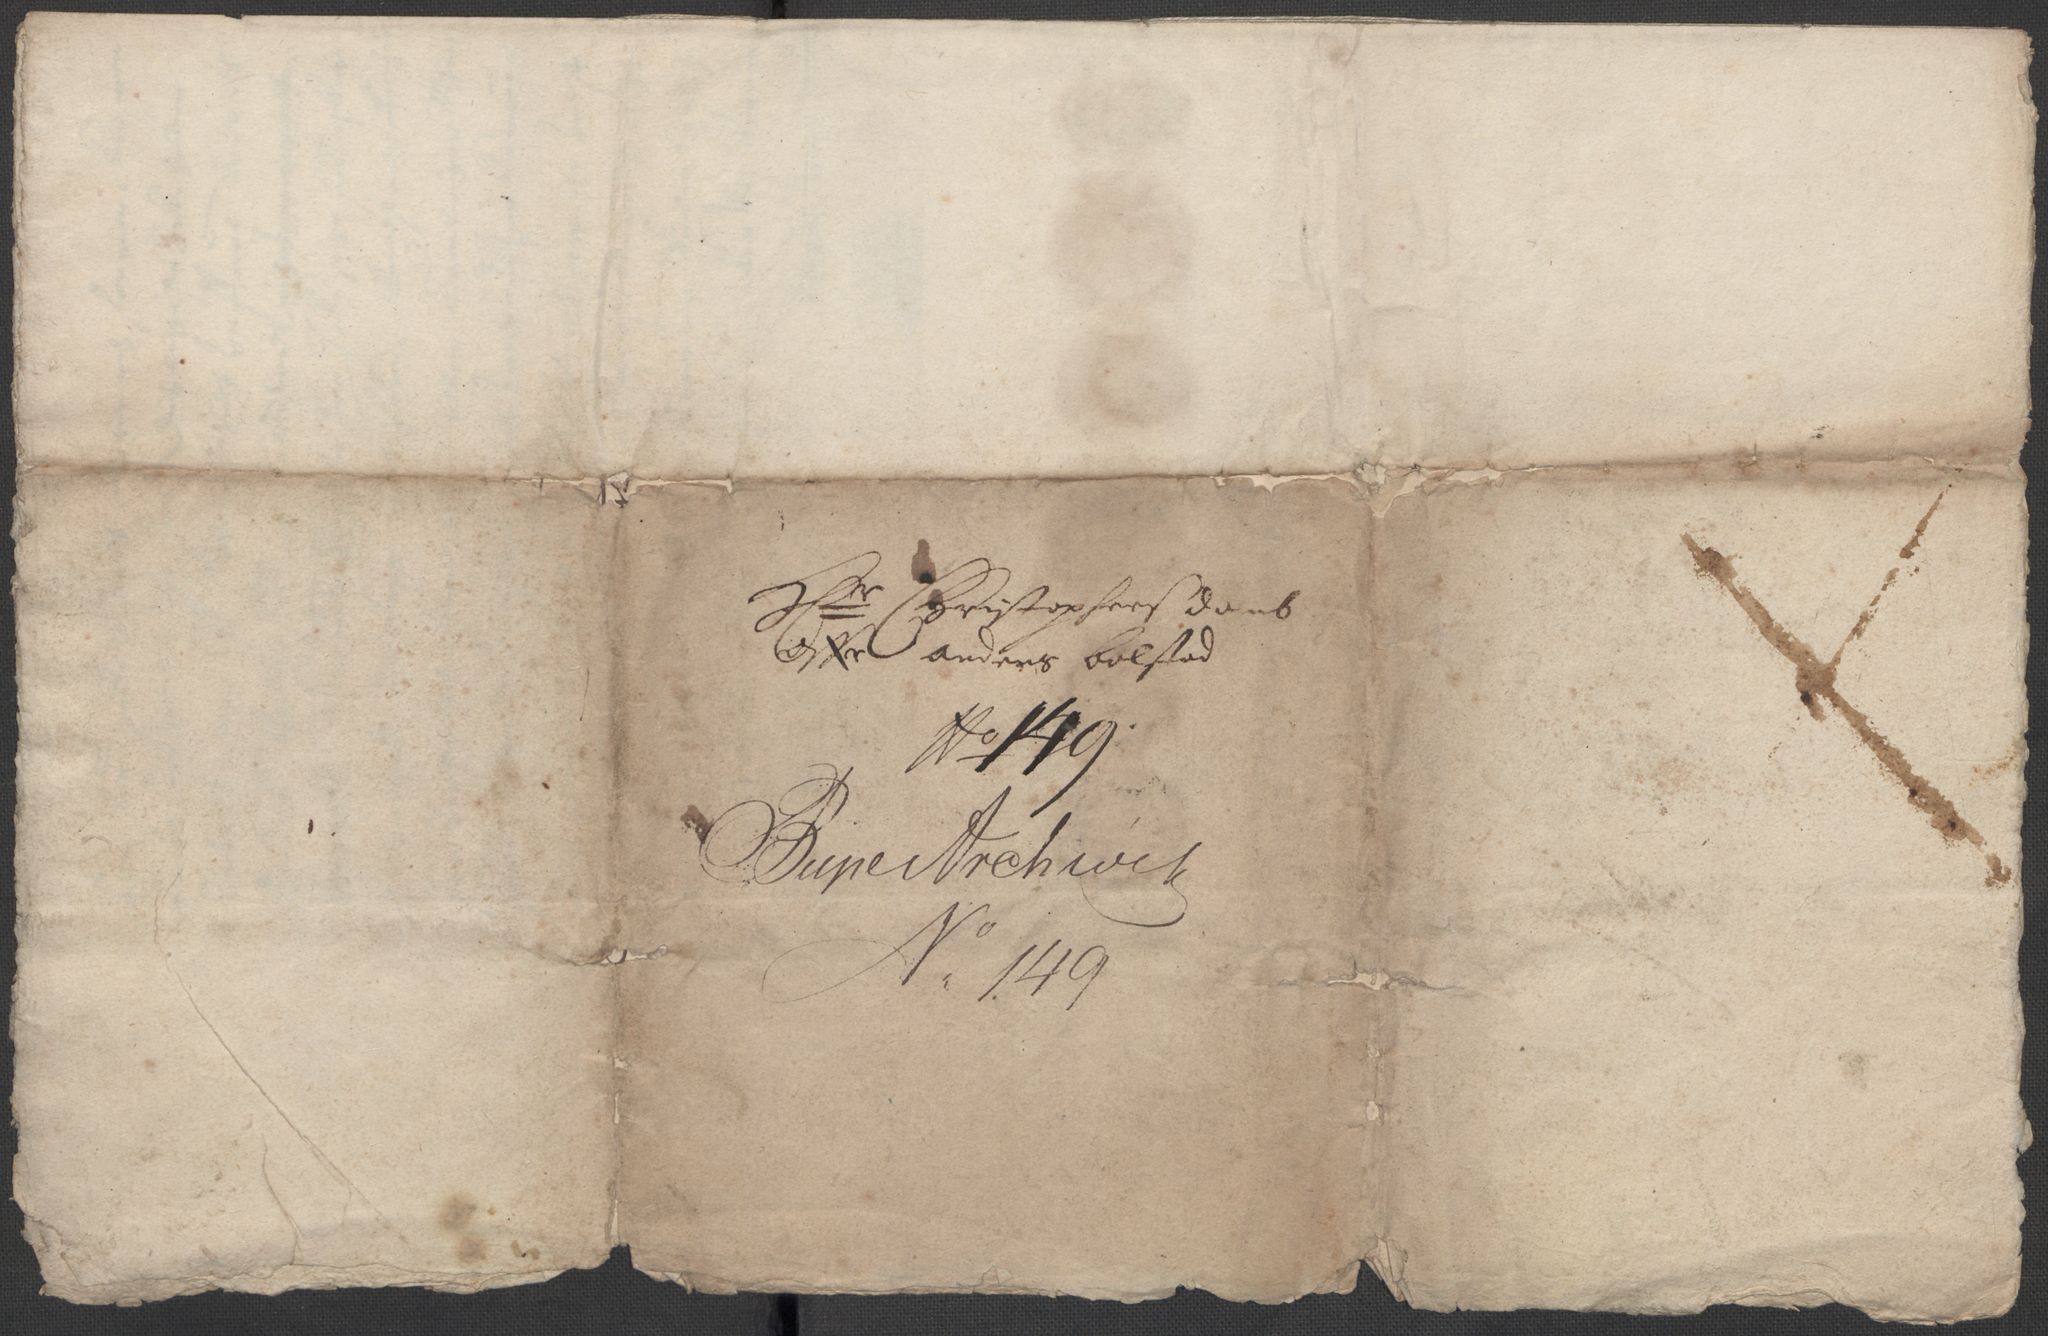 Hr Christophers domb
offr anders bolstad
No 149.
Bupe Archivet
No. 149